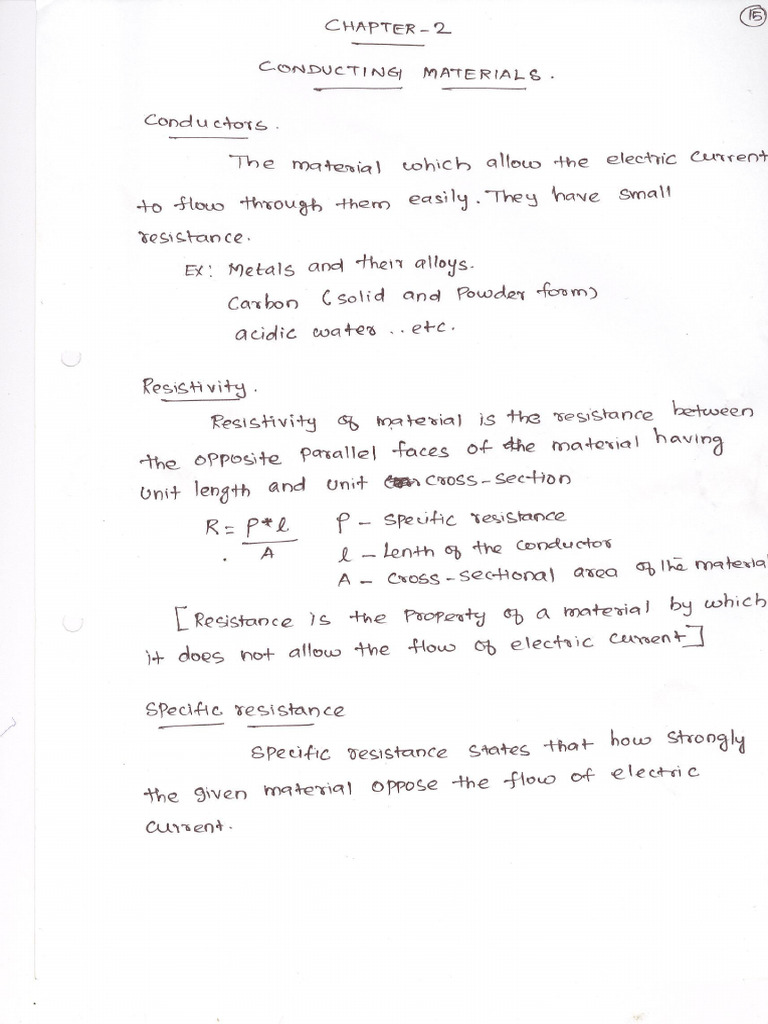 15
CHAPTER-2
CONDUCTING MATERIALS.
Conductors.
The material which allow the electric current
to flow through them easily. They have small
resistance.
Ex: Metals and their alloys.
Carbon (solid and Powder form)
acidic water .. etc.
Resistivity.
Resistivity of material is the resistance between
the opposite parallel faces of the material having
unit length and unit cross-section
R = ρ*l / A    ρ - specific resistance
l - Lenth of the conductor
A - cross-sectional area of the material
[Resistance is the Property of a material by which
it does not allow the flow of electric current]
Specific resistance
Specific resistance states that how strongly
the given material oppose the flow of electric
current.